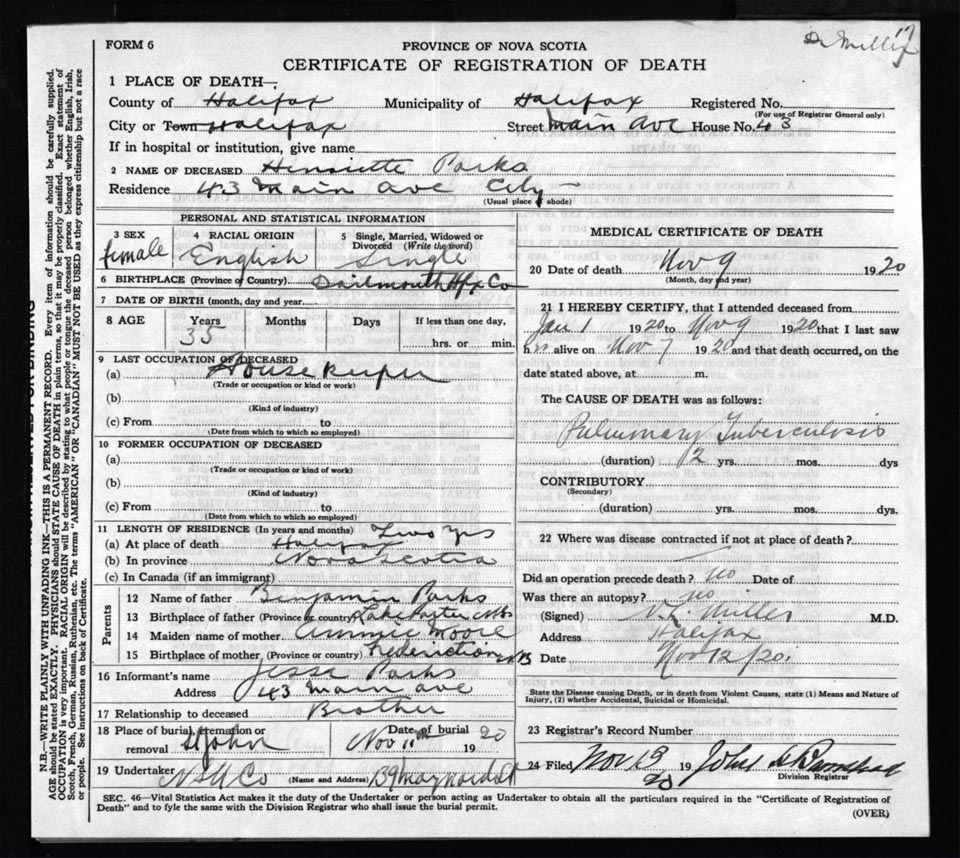 Dr Miller
FORM 6
PROVINCE OF NOVA SCOTIA
CERTIFICATE OF REGISTRATION OF DEATH
1 PLACE OF DEATH—
County of Halifax Municipality of Halifax Registered No.
(For use of Registrar General only)
City or Town Halifax Street Main Ave House No. 43
If in hospital or institution, give name
2 NAME OF DECEASED Henriette Parks
Residence 43 Main Ave City
(Usual place of abode)
PERSONAL AND STATISTICAL INFORMATION
3 SEX 4 RACIAL ORIGIN 5 Single, Married, Widowed or
Divorced (Write the word)
female English Single
6 BIRTHPLACE (Province or Country) Dartmouth Hfx Co
7 DATE OF BIRTH (month, day and year)
8 AGE Years Months Days If less than one day,
35 hrs. or min.
9 LAST OCCUPATION OF DECEASED
(a) House keeper
(Trade or occupation or kind or work)
(b)
(Kind of industry)
(c) From to
(Date from which to which so employed)
10 FORMER OCCUPATION OF DECEASED
(a)
(Trade or occupation or kind of work)
(b)
(Kind of industry)
(c) From to
(Date from which to which so employed)
11 LENGTH OF RESIDENCE (In years and months) Two yrs
(a) At place of death Halifax
(b) In province Nova Scotia
(c) In Canada (if an immigrant)
Parents
12 Name of father Benjamin Parks
13 Birthplace of father (Province or country) Lake
14 Maiden name of mother Ammie Moore
15 Birthplace of mother (Province or country) Fredericton NB
16 Informant's name Jesse Parks
Address 43 Main ave
17 Relationship to deceased Brother
18 Place of burial, cremation or Date of burial
removal St John Nov 11th 1920
19 Undertaker N S U Co (Name and Address)
MEDICAL CERTIFICATE OF DEATH
20 Date of death Nov 9 1920
(Month, day and year)
21 I HEREBY CERTIFY, that I attended deceased from
Jan 1 1920 to Nov 9 1920 that I last saw
her alive on Nov 7 1920 and that death occurred, on the
date stated above, at m.
The CAUSE OF DEATH was as follows:
Pulmonary Tuberculosis
(duration) 12 yrs. mos. dys
CONTRIBUTORY
(Secondary)
(duration) yrs. mos. dys.
22 Where was disease contracted if not at place of death?
Did an operation precede death? no Date of
Was there an autopsy? no
(Signed) Miller M.D.
Address Halifax
Date Nov 12/20
State the Disease causing Death, or in death from Violent Causes, state (1) Means and Nature of
Injury, (2) whether Accidental, Suicidal or Homicidal.
23 Registrar's Record Number
24 Filed Nov 13 19 20 John
Division Registrar
SEC. 46—Vital Statistics Act makes it the duty of the Undertaker or person acting as Undertaker to obtain all the particulars required in the "Certificate of Registration of
Death" and to fyle the same with the Division Registrar who shall issue the burial permit.
(OVER)
N.B.—WRITE PLAINLY WITH UNFADING INK—THIS IS A PERMANENT RECORD. Every item of information should be carefully supplied.
AGE should be stated EXACTLY. PHYSICIANS should STATE CAUSE OF DEATH in plain terms, so that it may be properly classified. Exact statement of
OCCUPATION is very important. RACIAL ORIGIN will be described by stating to what people or tongue the deceased person belonged whether English, Irish,
Scotch, French, German, Russian, Ruthenian, etc. The terms "AMERICAN" OR "CANADIAN" MUST NOT BE USED as they express citizenship but not a race
or people. See instructions on back of Certificate.